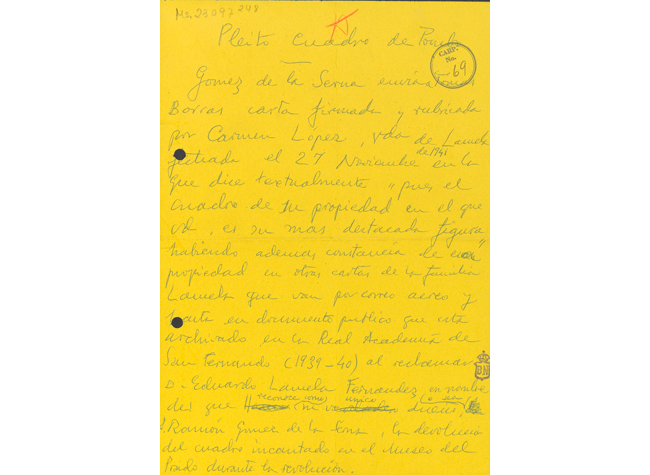 Ms 23097 248
Pleito cuadro de
CARP.
No. 69
Gomez de la Serna envia a
Borras carta firmada y rubricada
por Carmen Lopez, vda de Lamela
fechada el 27 Noviembre de 1941 en la
que dice textualmente "pues el
cuadro de su propiedad en el que
vd, es su mas destacada figura"
habiendo ademas constancia de esa
propiedad en otras cartas de la familia
Lamela que van por correo aereo y
hasta en documento publico que esta
archivado en la Real Academia de
San Fernando (1939-40) al reclamar
D. Eduardo Lamela Fernandez en nombre
del que reconoce como unico (o sea) dueño,
D. Ramón Gomez de la Serna, la devolucion
del cuadro incautado en el Museo del
Prado durante la revolución.
BN